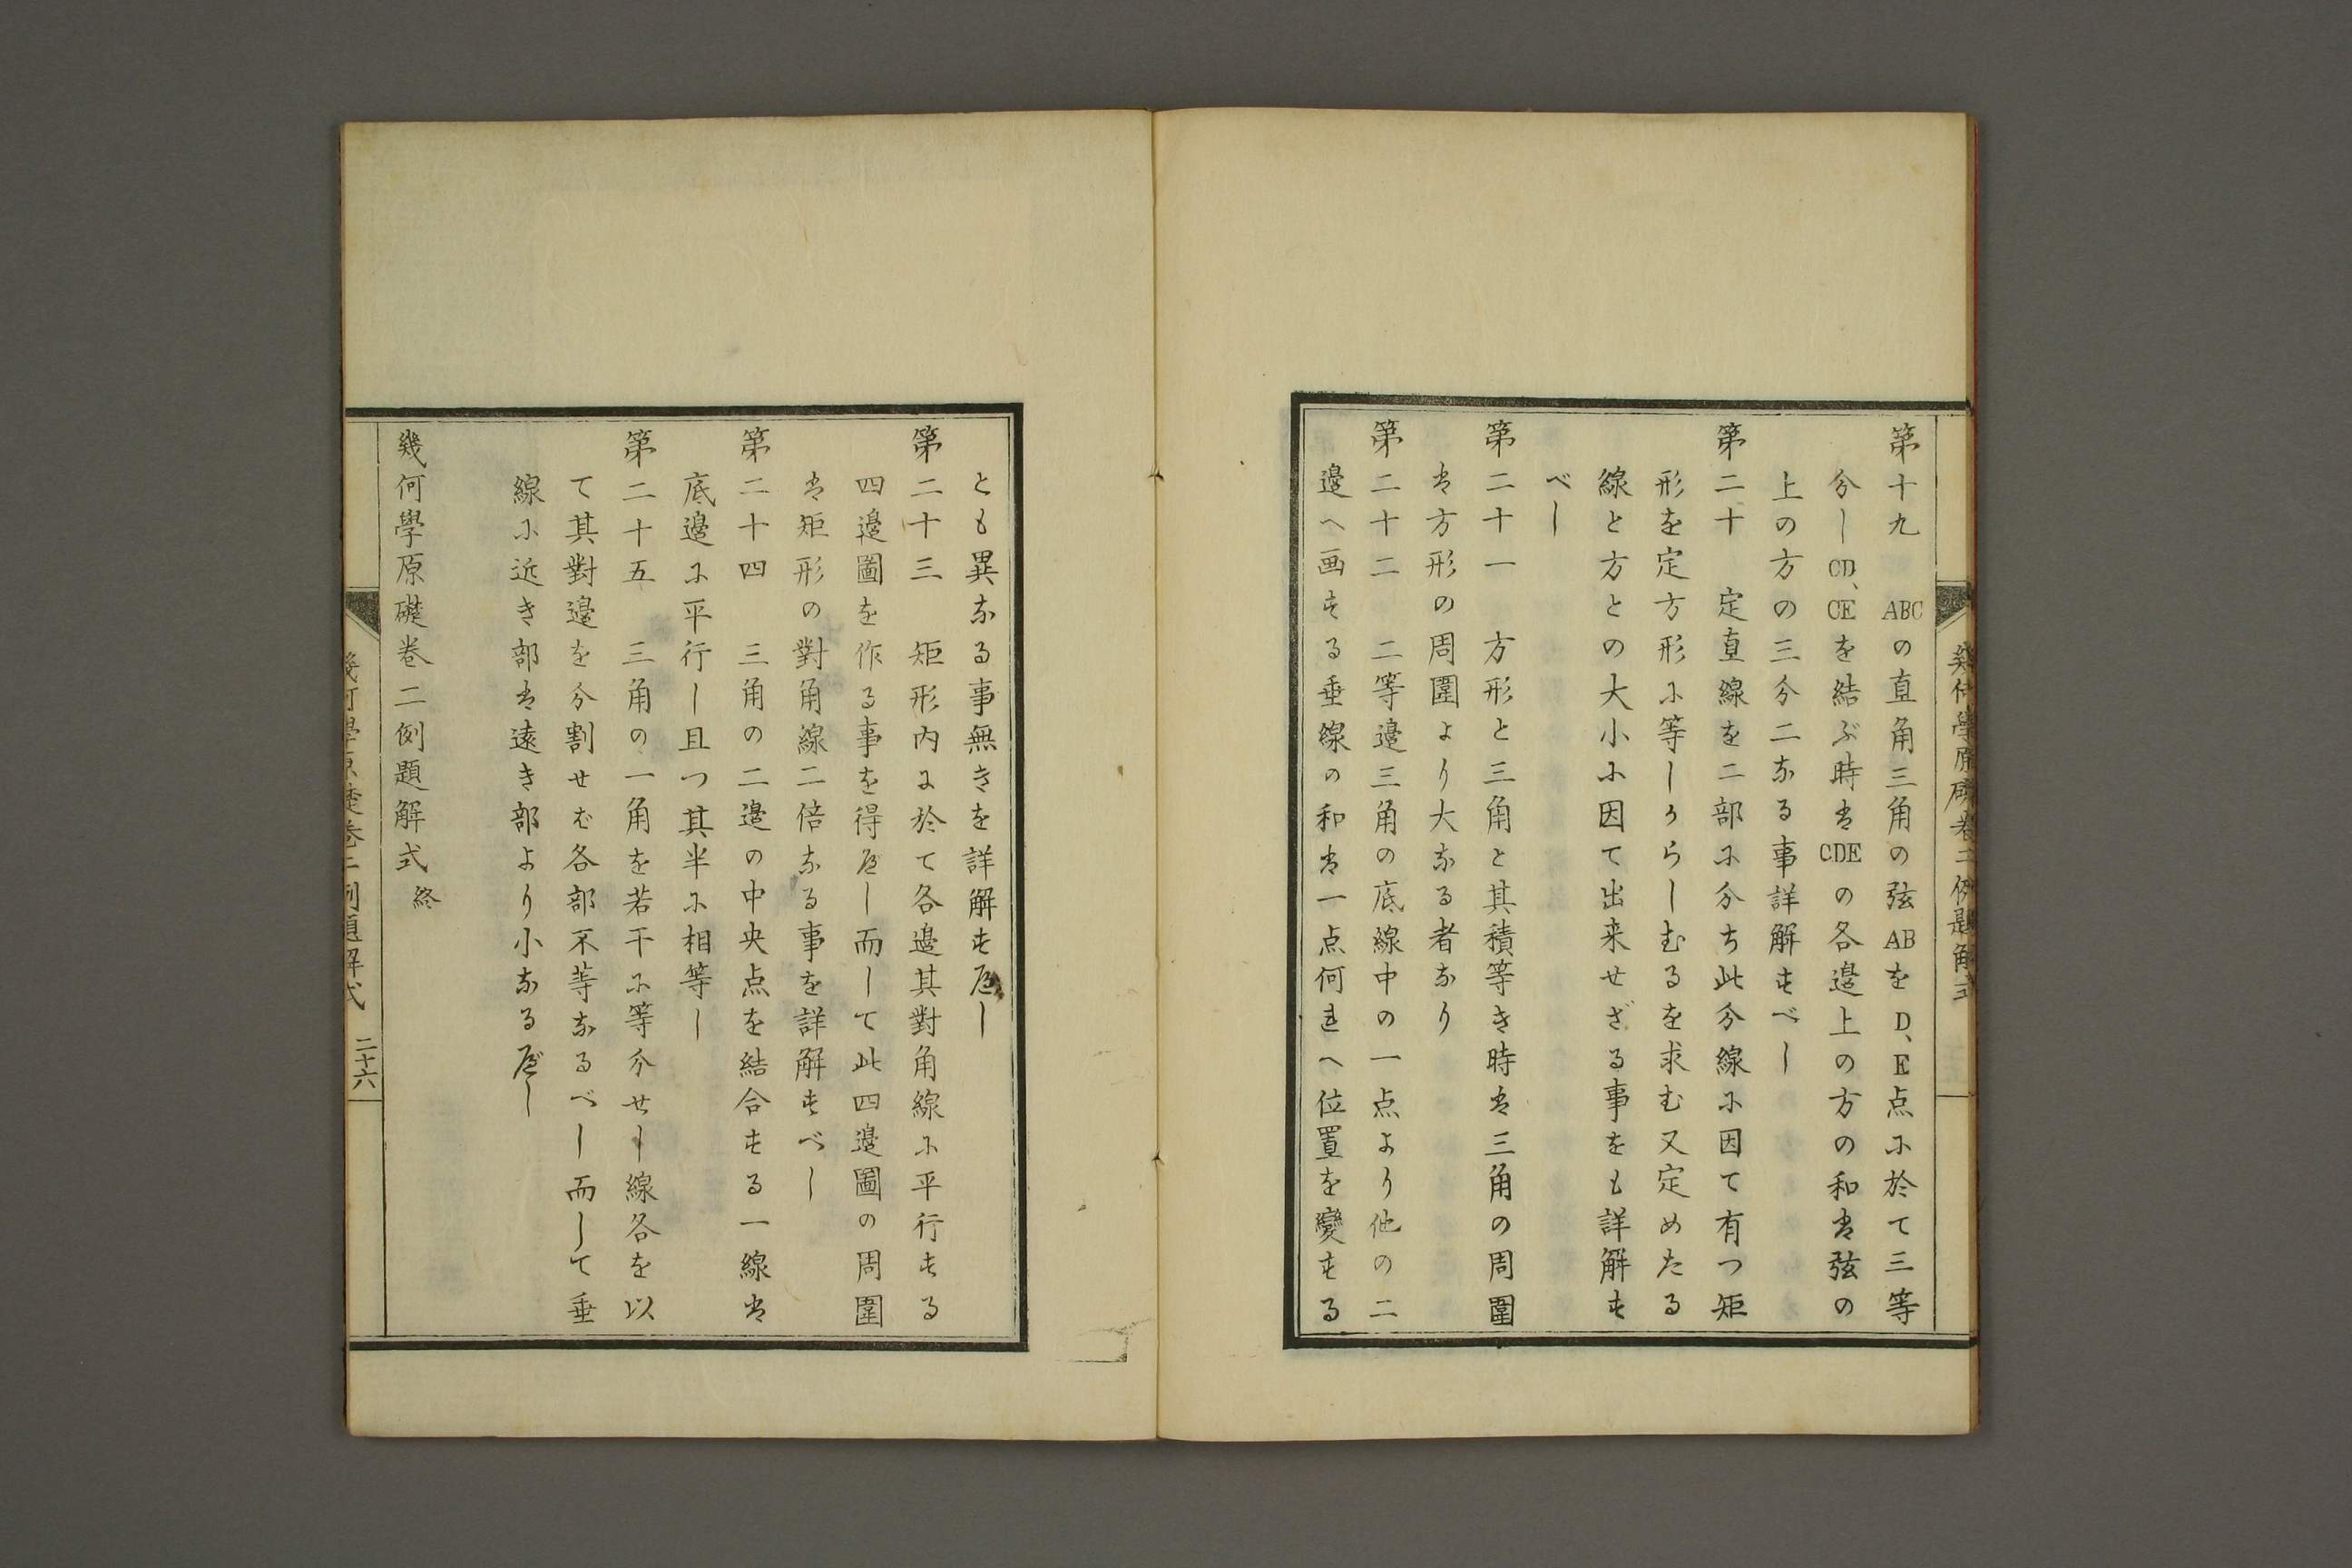 第十九　ABCの直角三角の弦ABをD、E点に於て三等
分しCD、CEを結ぶ時はCDEの各邉上の方の和は弦の
上の方の三分二なる事詳解すべし
第二十　定直線を二部に分ち此分線に因て有つ矩
形を定方形に等しからしむるを求む又定めたる
線と方との大小に因て出来せざる事をも詳解す
べし
第二十一　方形と三角と其積等き時は三角の周圍
は方形の周圍より大なる者なり
第二十二　二等邉三角の底線中の一点より他の二
邉へ画する垂線の和は一点何れへ位置を變する
とも異なる事無きを詳解すべし
第二十三　矩形内に於て各邉其對角線に平行する
四邉圖を作る事を得べし而して此四邉圖の周圍
は矩形の對角線二倍なる事を詳解すべし
第二十四　三角の二邉の中央点を結合する一線は
底邉に平行し且つ其半に相等し
第二十五　三角の一角を若干に等分せし線各を以
て其對邉を分割せば各部不等なるべし而して垂
線に近き部は遠き部より小なるべし
幾何學原礎巻二例題解式　終
幾何學原礎巻二例題解式　二十六